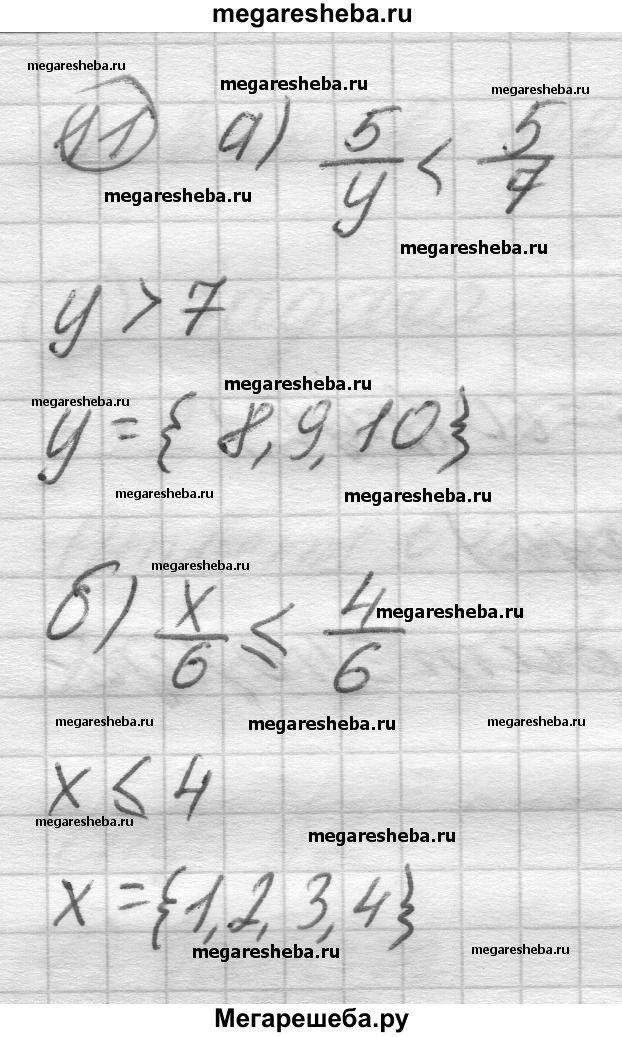 megaresheba.ru
megaresheba.ru megaresheba.ru megaresheba.ru
11 а) 5/y < 5/7
megaresheba.ru
megaresheba.ru
y > 7
megaresheba.ru
megaresheba.ru
y = { 8, 9, 10 }
megaresheba.ru megaresheba.ru
megaresheba.ru
б) x/6 ≤ 4/6
megaresheba.ru
megaresheba.ru megaresheba.ru megaresheba.ru
x ≤ 4
megaresheba.ru
megaresheba.ru
x = {1, 2, 3, 4}
megaresheba.ru megaresheba.ru
Мегарешеба.ру